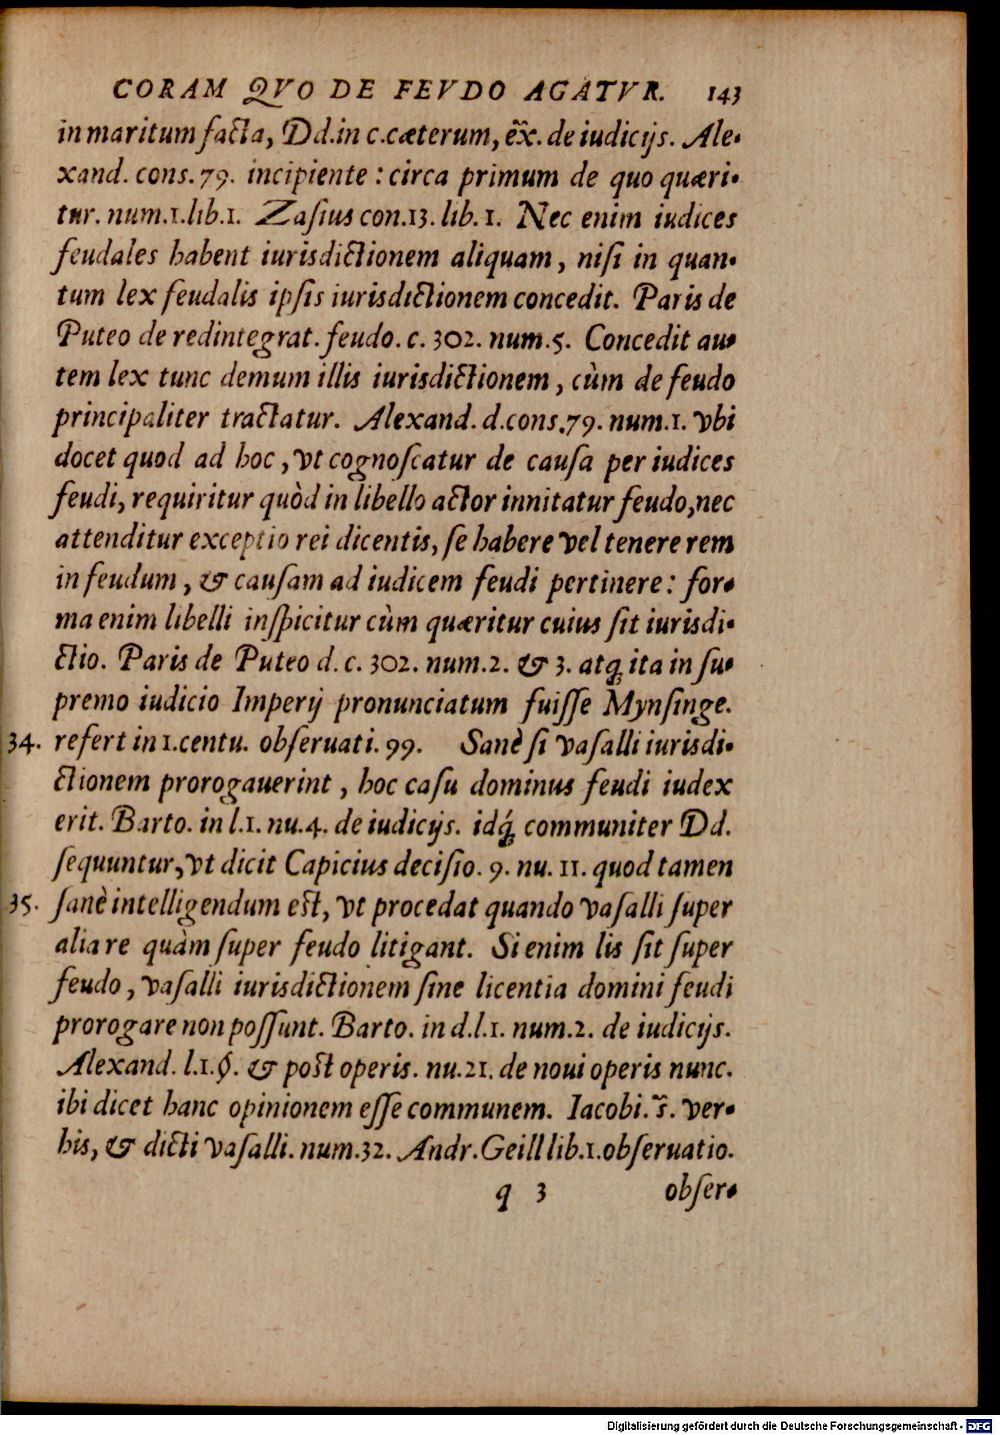 CORAM QVO DE FEVDO AGATVR. 143
in maritum facta, Dd. in c. cæterum, ex̃. de iudicijs. Ale-
xand. cons. 79. incipiente : circa primum de quo quæri-
tur. num.1. lib.1. Zaſius con.13. lib. 1. Nec enim iudices
feudales habent iurisdictionem aliquam, niſi in quan-
tum lex feudalis ipſis iurisdictionem concedit. Paris de
Puteo de redintegrat. feudo. c. 302. num.5. Concedit au-
tem lex tunc demum illis iurisdictionem, cùm de feudo
principaliter tractatur. Alexand. d. cons. 79. num.1. vbi
docet quod ad hoc, vt cognoſcatur de cauſa per iudices
feudi, requiritur quòd in libello actor innitatur feudo, nec
attenditur exceptio rei dicentis, ſe habere vel tenere rem
in feudum, & cauſam ad iudicem feudi pertinere: for-
ma enim libelli inſpicitur cùm quæritur cuius ſit iurisdi-
ctio. Paris de Puteo d. c. 302. num.2. & 3. atq́; ita in ſu-
premo iudicio Imperij pronunciatum fuiſſe Mynſinge.
34. refert in 1. centu. obſeruati. 99. Sanè ſi vaſalli iurisdi-
ctionem prorogauerint, hoc caſu dominus feudi iudex
erit. Barto. in l.1. nu.4. de iudicijs. idq́; communiter Dd.
ſequuntur, vt dicit Capicius deciſio. 9. nu. 11. quod tamen
35. ſanè intelligendum eſt, vt procedat quando vaſalli ſuper
alia re quàm ſuper feudo litigant. Si enim lis ſit ſuper
feudo, vaſalli iurisdictionem ſine licentia domini feudi
prorogare non poſſunt. Barto. in d.l.1. num.2. de iudicijs.
Alexand. l.1. §. & poſt operis. nu.21. de noui operis nunc.
ibi dicet hanc opinionem eſſe communem. Iacobi. s̃. ver-
bis, & dicti vaſalli. num.32. Andr. Geill lib.1. obſeruatio.
q 3 obſer-
Digitalisierung gefördert durch die Deutsche Forschungsgemeinschaft - DFG